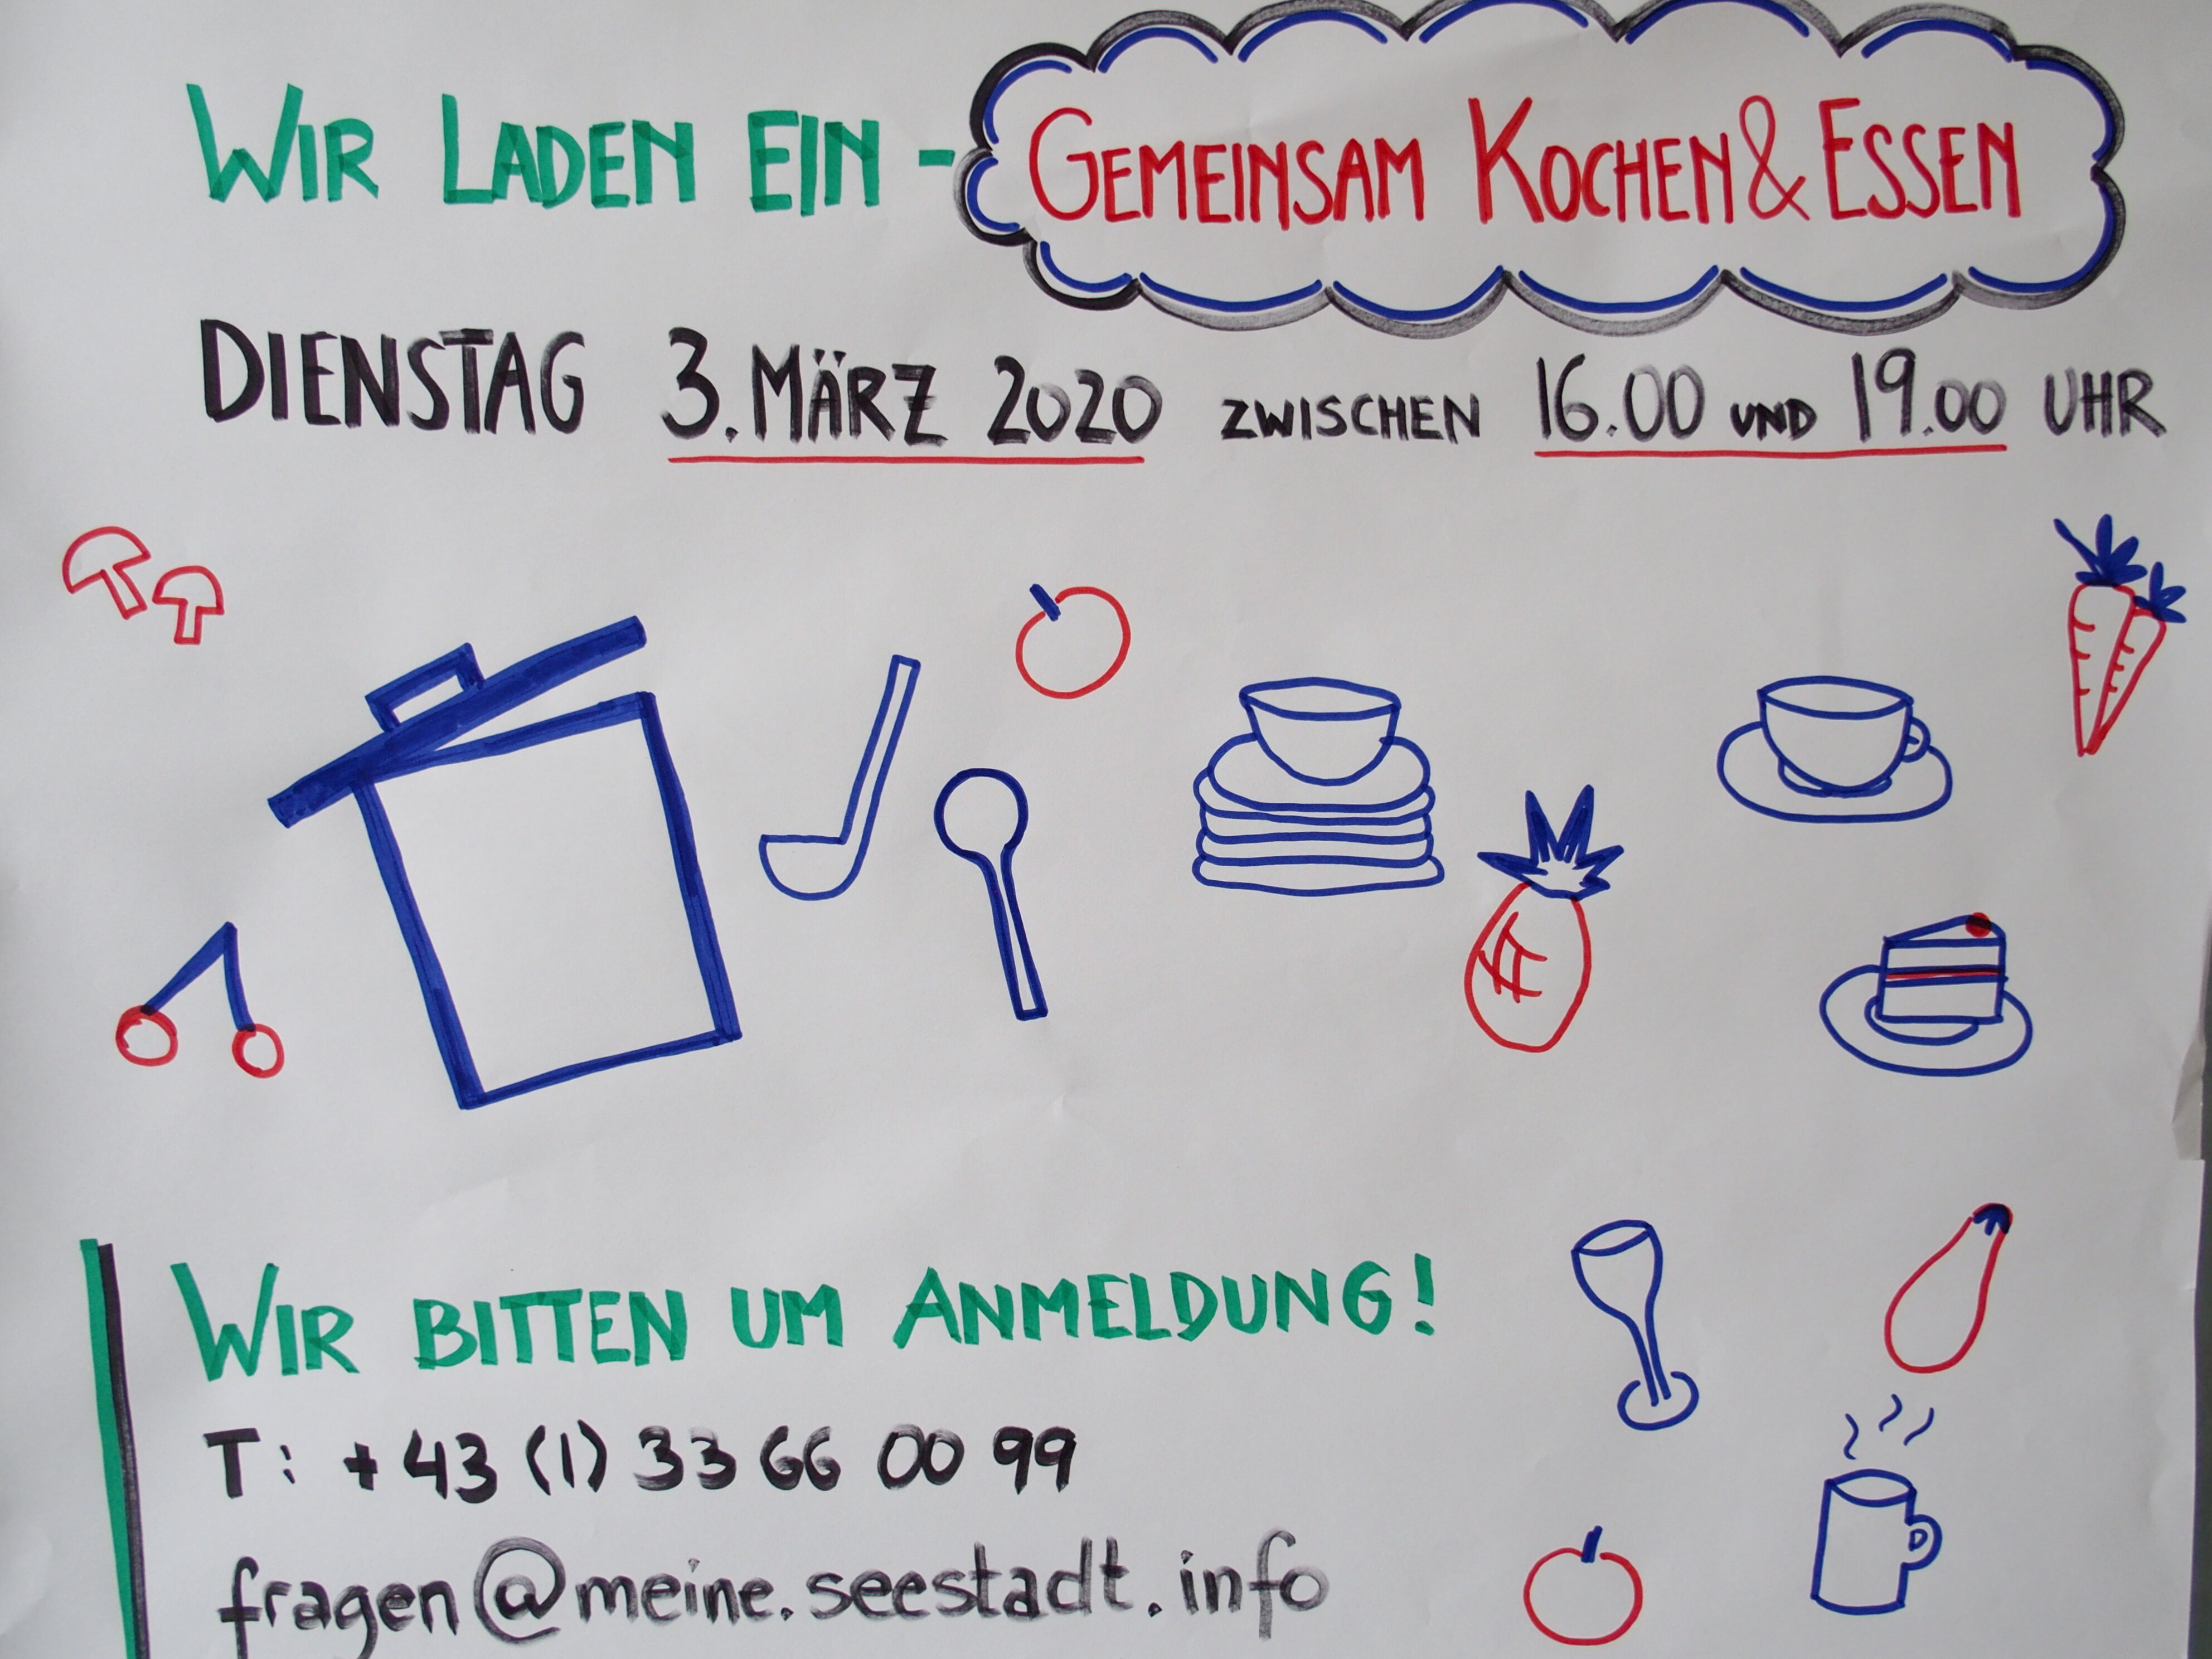 WIR LADEN EIN - GEMEINSAM KOCHEN & ESSEN
DIENSTAG 3. MÄRZ 2020 ZWISCHEN 16.00 UND 19.00 UHR
WIR BITTEN UM ANMELDUNG!
T: +43 (1) 33 66 00 99
fragen@meine.seestadt.info